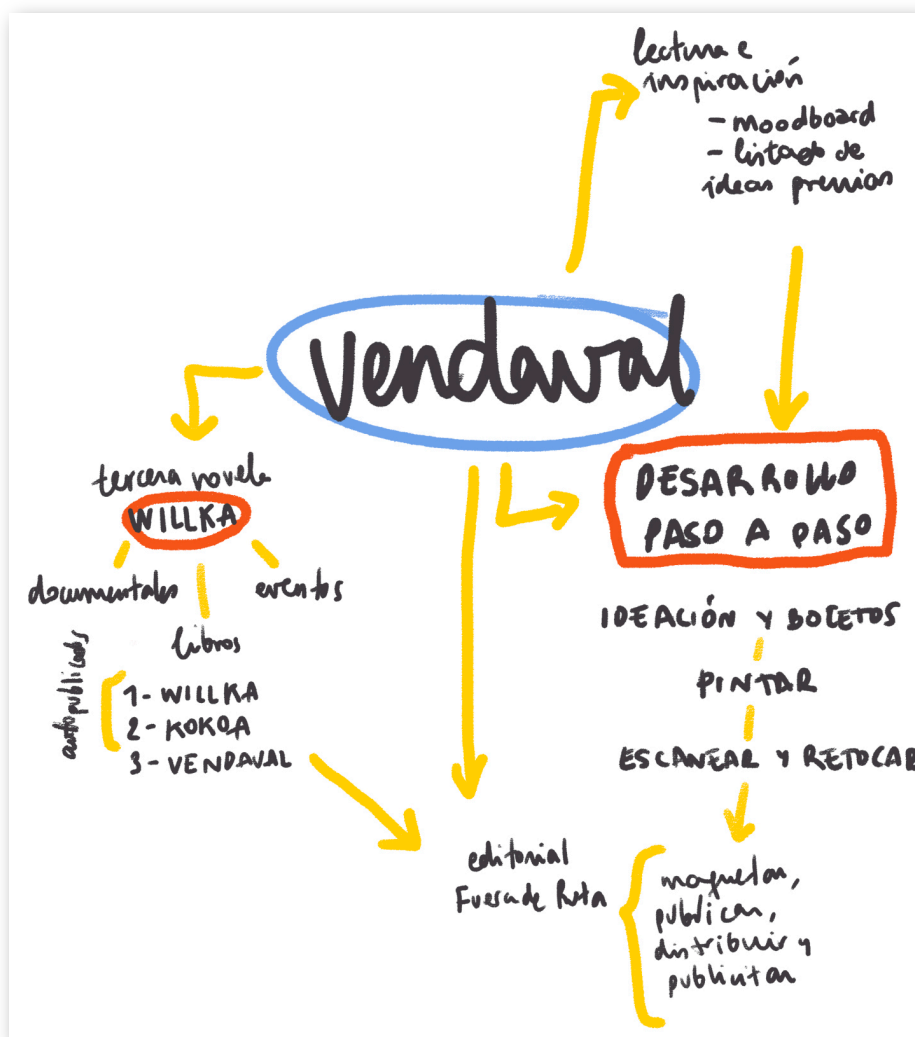 lectura e
inspiración
- moodboard
- listado de
ideas previas
Vendaval
tercera novela
WILLKA
documentales
eventos
libros
autopublicados
1- WILLKA
2- KOKOA
3- VENDAVAL
DESARROLLO
PASO A PASO
IDEACIÓN Y BOCETOS
PINTAR
ESCANEAR Y RETOCAR
editorial
Fuera de Ruta
maquetar,
publicar,
distribuir y
publicitar